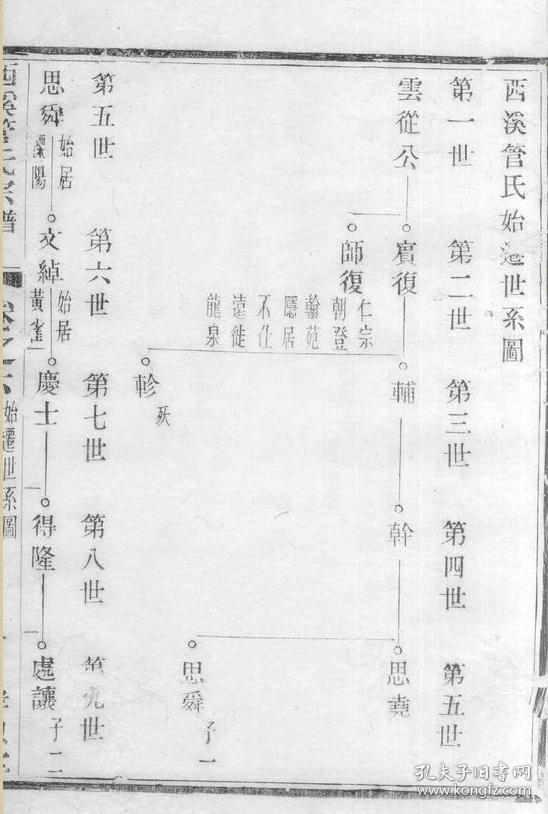 西溪管氏始遷世系圖
第一世 第二世 第三世 第四世 第五世
雲從公 賓復 輔 幹 思堯
師復
仁宗
朝登
翰苑
隱居
不仕
遠徙
龍泉
思舜 子一
軫 殀
第五世 第六世 第七世 第八世 第九世
思舜 始居 陽 文綽 始居 黃雀 慶士 得隆 處讓 子二
西溪管氏宗譜
始遷世系圖
孔夫子旧书网
www.kongfz.com